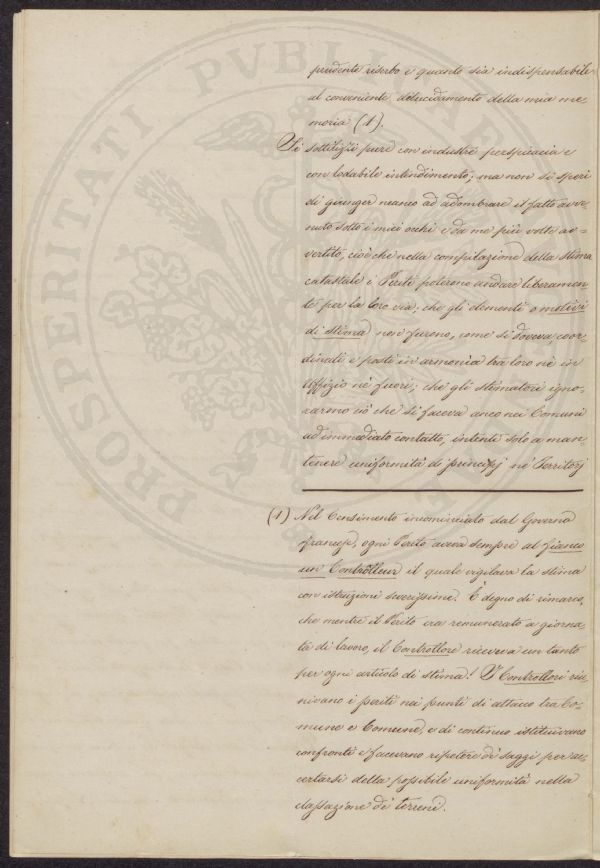 prudente riserbo e quanto sia indispensabile
al conveniente delucidamento della mia me=
moria (1).
Si sottilizzi pure con industre perspicacia e
con lodabile intendimento; ma non si speri
di giunger neanco ad adombrare il fatto avve=
nuto sotto i miei occhi e da me più volte av=
vertito, cioè che nella compilazione della stima
catastale i Periti poterono andare liberamen=
te per la loro via; che gli elementi o motivi
di stima non furono, come si doveva, coor=
dinati e posti in armonia tra loro nè in
Uffizio nè fuori; che gli stimatori igno=
rarono ciò che si faceva anco nei Comuni
ad immediato contatto, intenti solo a man=
tenere uniformità di principj ne' Territorj
(1) Nel Censimento incominciato dal Governo
francese, ogni Perito aveva sempre al fianco
un Contrôlleur il quale vigilava la stima
con istruzioni severissime. È degno di rimarco,
che mentre il Perito era remunerato a giorna=
ta di lavoro, il Controllore riceveva un tanto
per ogni articolo di stima! I Controllori riu=
nivano i periti nei punti di attacco tra Co=
mune e Comune, e di continuo istituivano
confronti e facevano ripetere de' saggi per ac=
certarsi della possibile uniformità nella
classazione de' terreni.
PROSPERITATI PVBLICAE